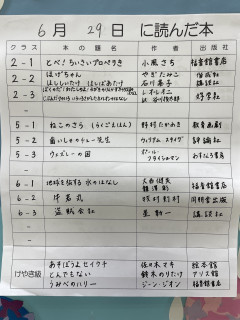 6月 29日 に読んだ本
クラス 本の題名 作者 出版社
2-1 とべ！ちいさいプロペラき 小風さち 福音館書店
2-2 ほげちゃん やぎたみこ 偕成社
はしれ！ 石川 講談社
2-3 レオ・レオニ 好学社
訳 谷川俊太郎
5-1 ねこのさら（らくごえほん） 野村たかあき 教育画劇
5-2 歯いしゃのチュー先生 ウィリアム・スタイグ 評論社
5-3 ウェズレーの国 ポール・フライシュマン あすなろ書房
6-1 地球を旅する水のはなし 大西健夫 福音館書店
6-2 仔牛丸
6-3 盗賊会社 星新一 講談社
けやき級 あそぼうよセイウチ 佐々木マキ 絵本館
とんでもない 鈴木のりたけ アリス館
うみべのハリー ジーン・ジオン 福音館書店